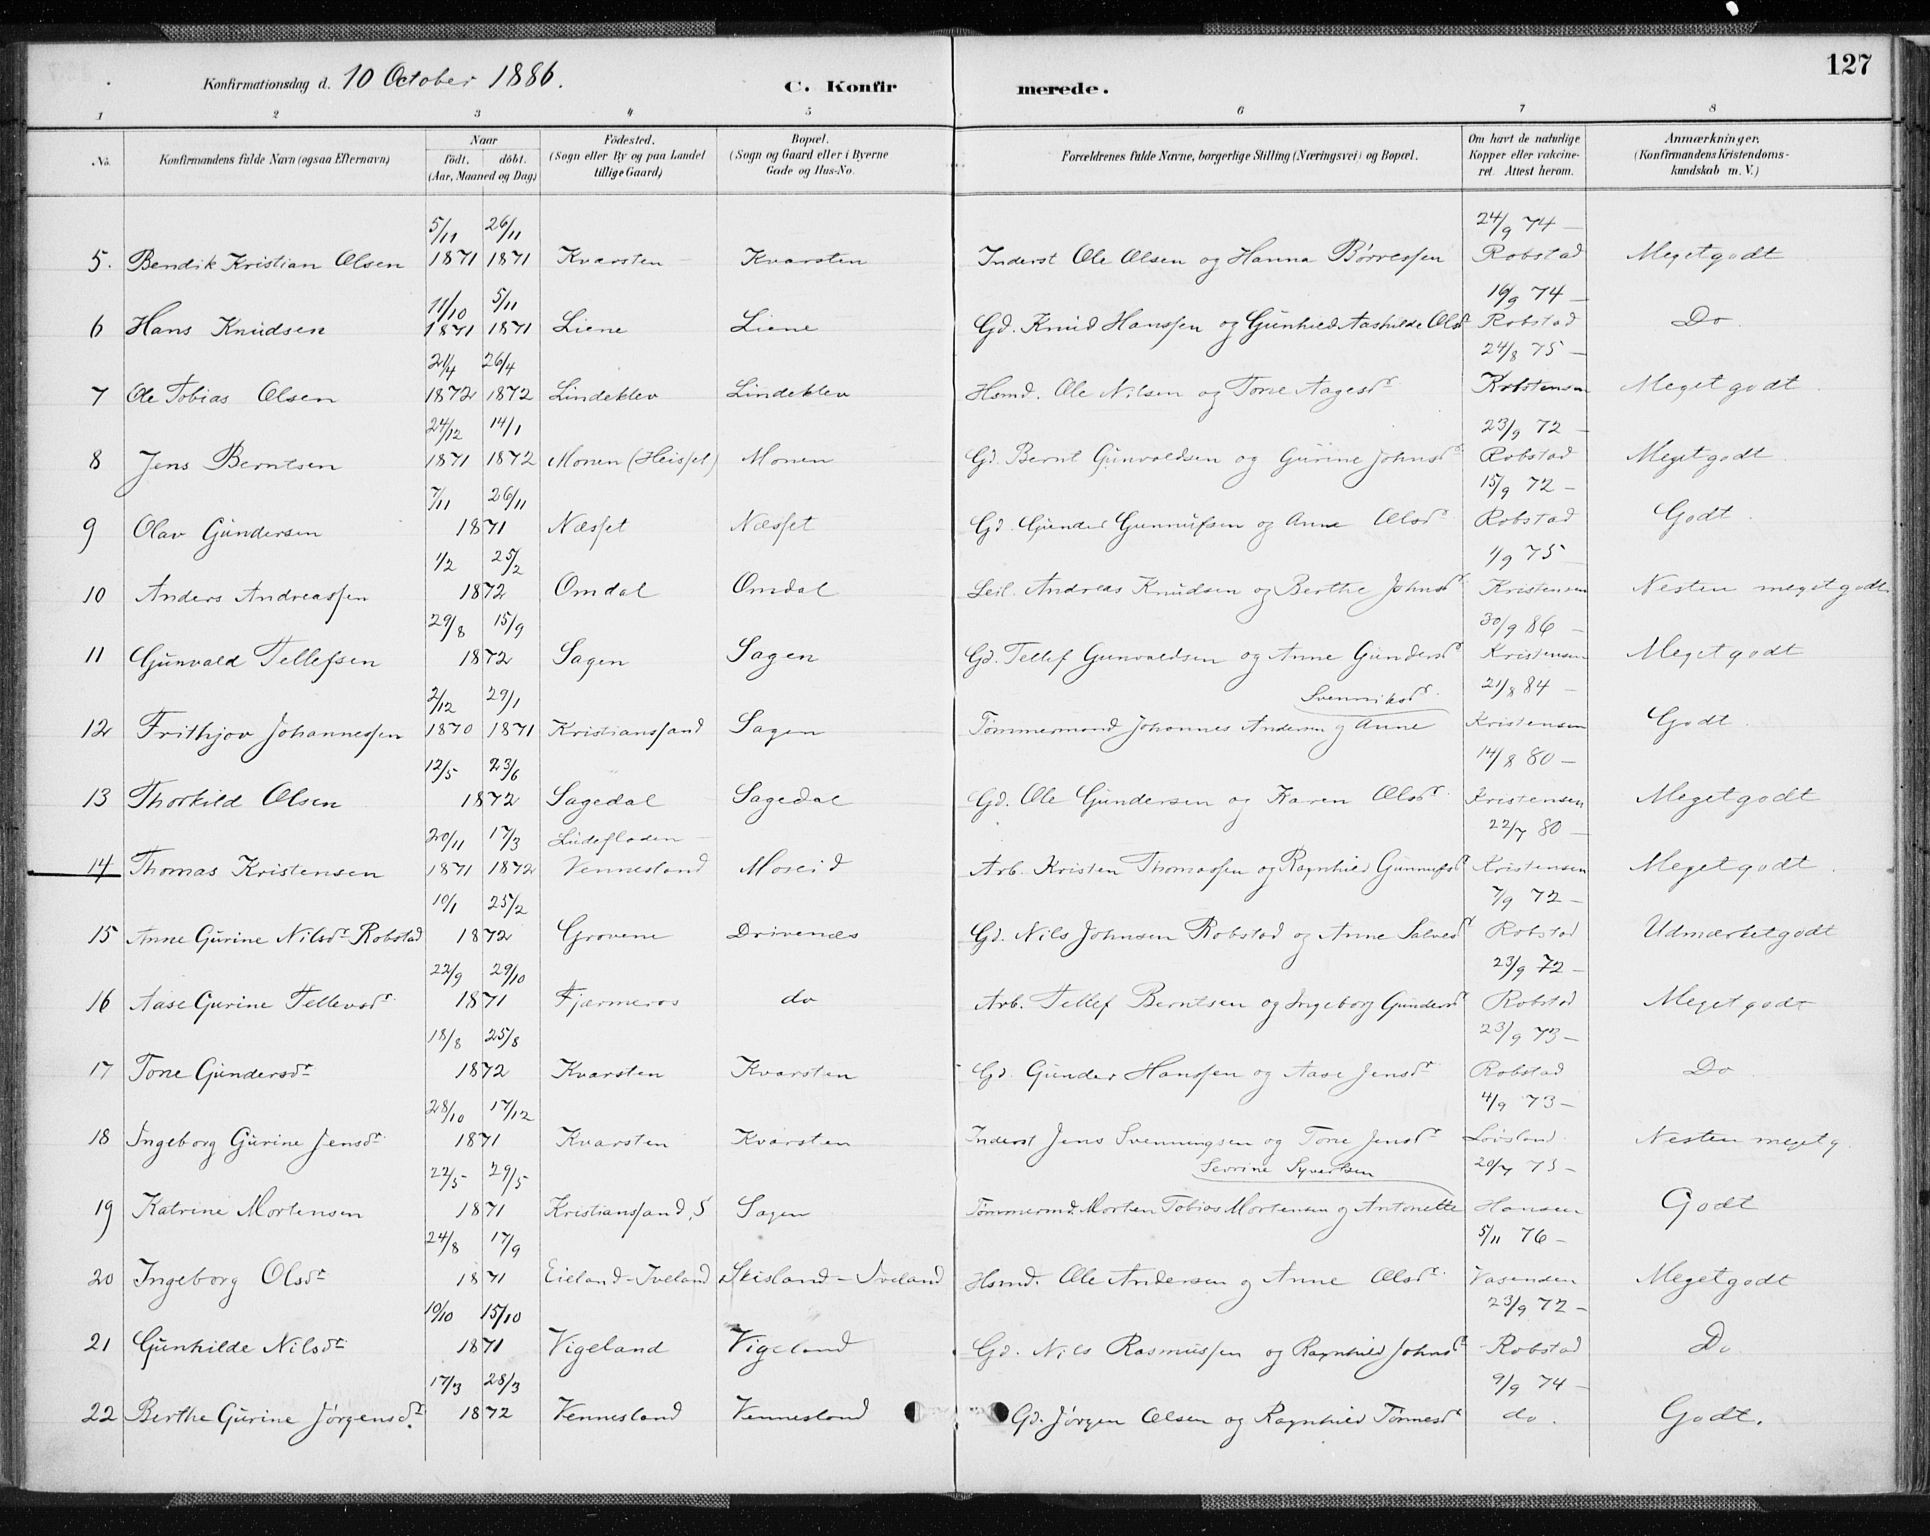 127
Konfirmationsdag d. 10 October 1886.
C. Konfir merede.
1 2 3 4 5 6 7 8
No. Konfirmandens fulde Navn (ogsaa Efternavn) Naar født. døbt. (Aar, Maaned og Dag) Fødested. (Sogn eller By og paa Landet tillige Gaard) Bopæl. (Sogn og Gaard eller i Byerne Gade og Hus-No. Forældrenes fulde Navne, borgerlige Stilling (Næringsvei) og Bopæl. Om havt de naturlige Kopper eller vakcineret. Attest herom. Anmærkninger. (Konfirmandens Kristendomskundskab m. V.)
5/11 26/11 24/9 74 —
5. Bendik Kristian Olsen 1871 1871 Kvarsten Kvarsten Inderst Ole Olsen og Hanna Børresen Robstad Meget godt
11/10 5/11 16/9 74 —
6 Hans Knudsen 1871 1871 Liene Liene Gd. Knud Hanssen og Gunhild Aashilde Olsdr Robstad Do
21/4 26/4 24/8 75 —
7 Ole Tobias Olsen 1872 1872 Lindeklev Lindeklev Hsmd. Ole Nilsen og Tone Aagesdr Meget godt
24/12 14/1 23/9 72 —
8 Jens Berntsen 1871 1872 Monen (Heisset) Monen Gd. Bernt Gunvaldsen og Gurine Johnsdr Robstad Meget godt
7/11 26/11 15/9 72 —
9 Olav Gundersen 1871 Næsset Næsset Gd. Gunder Gunnufsen og Anne Olsdr Robstad Godt.
1/2 25/2 1/9 75
10 Anders Andreassen 1872 Omdal Omdal Leil. Andreas Knudsen og Berthe Johnsdr Kristensen Nesten meget godt.
29/8 15/9 30/9 86 —
11 Gunvald Tellefsen 1872 Sagen Sagen Gd. Tellef Gunvaldsen og Anne Gundersdr Kristensen Meget godt
2/12 29/1 Svenniksdr. 21/8 84 —
12 Frithjov Johannessen 1870 1871 Kristianssand Sagen Tømmermand Johannes Andersen og Anne Kristensen Godt
12/5 23/6 14/8 80 —
13 Thorkild Olsen 1872 Sagedal Sagedal Gd. Ole Gundersen og Karen Olsdr. Kristensen Meget godt
20/11 17/3 Ludefladen 22/7 80 —
14 Thomas Kristensen 1871 1872 Vennesland Moseid Arb. Kristen Thomassen og Ragnhild Gunnufsdr Kristensen Meget godt
10/1 25/2 7/9 72 —
15 Anne Gurine Nilsdr Robstad 1872 Grovene Drivenes Gd. Nils Johnsen Robstad og Anne Salvesdr Robstad Udmærket godt
22/9 29/10 23/9 72 —
16 Aase Gurine Tellevsdr 1871 Fjermeros do Arb. Tellef Berntsen og Ingeborg Gundersdr Robstad Meget godt
18/8 25/8 23/9 73 —
17 Tone Gundersdr 1872 Kvarsten Kvarsten Gd. Gunder Hanssen og Aase Jensdr Robstad Do
28/10 17/12 4/9 73 —
18 Ingeborg Gurine Jensdr 1871 Kvarsten Kvarsten Inderst Jens Svenningsen og Tone Jensdr Løisland Nesten meget g.
22/5 29/5 Sevrine Syvertsen 20/7 73 —
19 Katrine Mortensen 1871 Kristianssand, S Sagen Tømmermd. Morten Tobias Mortensen og Antonette Hansen Godt
24/8 17/9 5/11 76 —
20 Ingeborg Olsdr 1871 Eieland - Iveland Skisland - Iveland Hsmd. Ole Andersen og Anne Olsdr. Vasenden Meget godt
10/10 15/10 23/9 72 —
21 Gunhilde Nilsdr 1871 Vigeland Vigeland Gd. Nils Rasmussen og Ragnhild Johnsdr Robstad Do
17/3 28/3 9/9 74 —
22 Berthe Gurine Jørgensdr. 1872 Vennesland Vennesland Gd. Jørgen Olsen og Ragnhild Tønnesdr do. Godt.